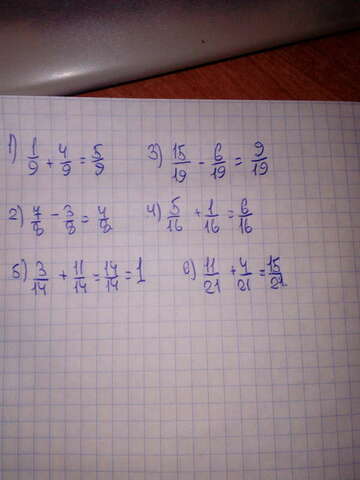 1) 1/9 + 4/9 = 5/9
3) 15/19 - 6/19 = 9/19
2) 7/8 - 3/8 = 4/8
4) 5/16 + 1/16 = 6/16
5) 3/14 + 11/14 = 14/14 = 1
6) 11/21 + 4/21 = 15/21